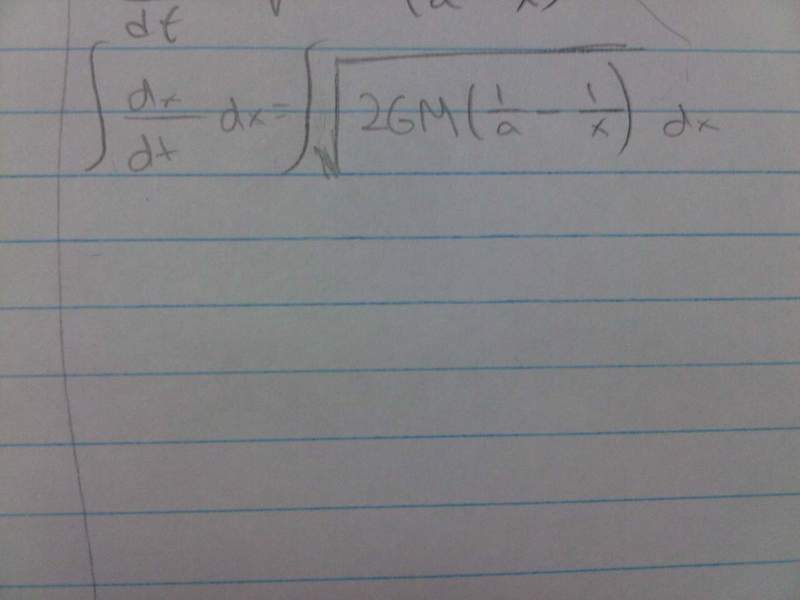 dt √ (a x)
∫ dx/dt dx = ∫ √(2GM(1/a - 1/x)) dx